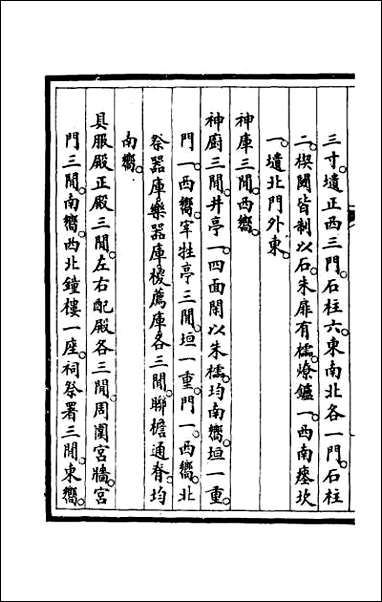 三寸。壝正西三門。石柱六。東南北各一門。石柱
二。楔閾皆制以石。朱扉有櫺。燎鑪一。西南瘞坎
一。壝北門外東。
神庫三閒。西嚮。
神廚三閒。井亭一。四面閑以朱櫺。均南嚮。垣一重。
門一。西嚮。宰牲亭三閒。垣一重。門一。西嚮。北
祭器庫樂器庫椶薦庫各三閒。聯檐通脊。均
南嚮。
具服殿正殿三閒。左右配殿各三閒。周圍宮牆。宮
門三閒。南嚮。西北鐘樓一座。祠祭署三閒。東嚮。